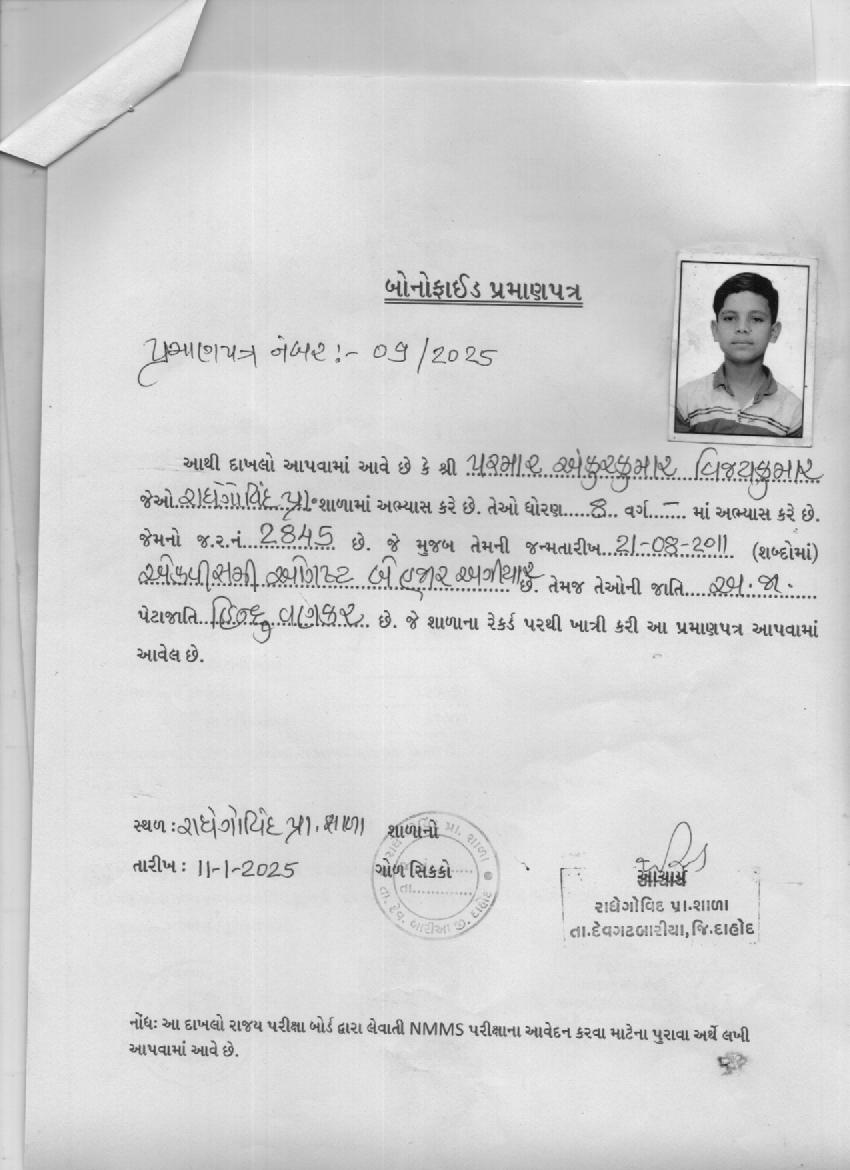 બોનોફાઈડ પ્રમાણપત્ર
પ્રમાણપત્ર નંબર :- 09/2025
આથી દાખલો આપવામાં આવે છે કે શ્રી પરમાર અંકુરકુમાર વિજયકુમાર
જેઓ રાધેગોવિંદ પ્રા. શાળામાં અભ્યાસ કરે છે. તેઓ ધોરણ....8.. વર્ગ...–... માં અભ્યાસ કરે છે.
જેમનો જ.ર.નં. 2845 છે. જે મુજબ તેમની જન્મતારીખ 21-08-2011 (શબ્દોમાં)
એકવીસમી ઓગષ્ટ બે હજાર અગીયાર છે. તેમજ તેઓની જાતિ...અ.જા.
પેટાજાતિ..હિન્દુ વણકર.. છે. જે શાળાના રેકર્ડ પરથી ખાત્રી કરી આ પ્રમાણપત્ર આપવામાં
આવેલ છે.
સ્થળ : રાધેગોવિંદ પ્રા. શાળા
શાળાનો
તારીખ : 11-1-2025
ગોળ સિક્કો
તા..............
તા. દેવ. બારીઆ જી. દાહોદ
આચાર્ય
રાધેગોવિંદ પ્રા.શાળા
તા.દેવગઢબારીયા, જિ.દાહોદ
નોંધઃ આ દાખલો રાજય પરીક્ષા બોર્ડ દ્વારા લેવાતી NMMS પરીક્ષાના આવેદન કરવા માટેના પુરાવા અર્થે લખી
આપવામાં આવે છે.